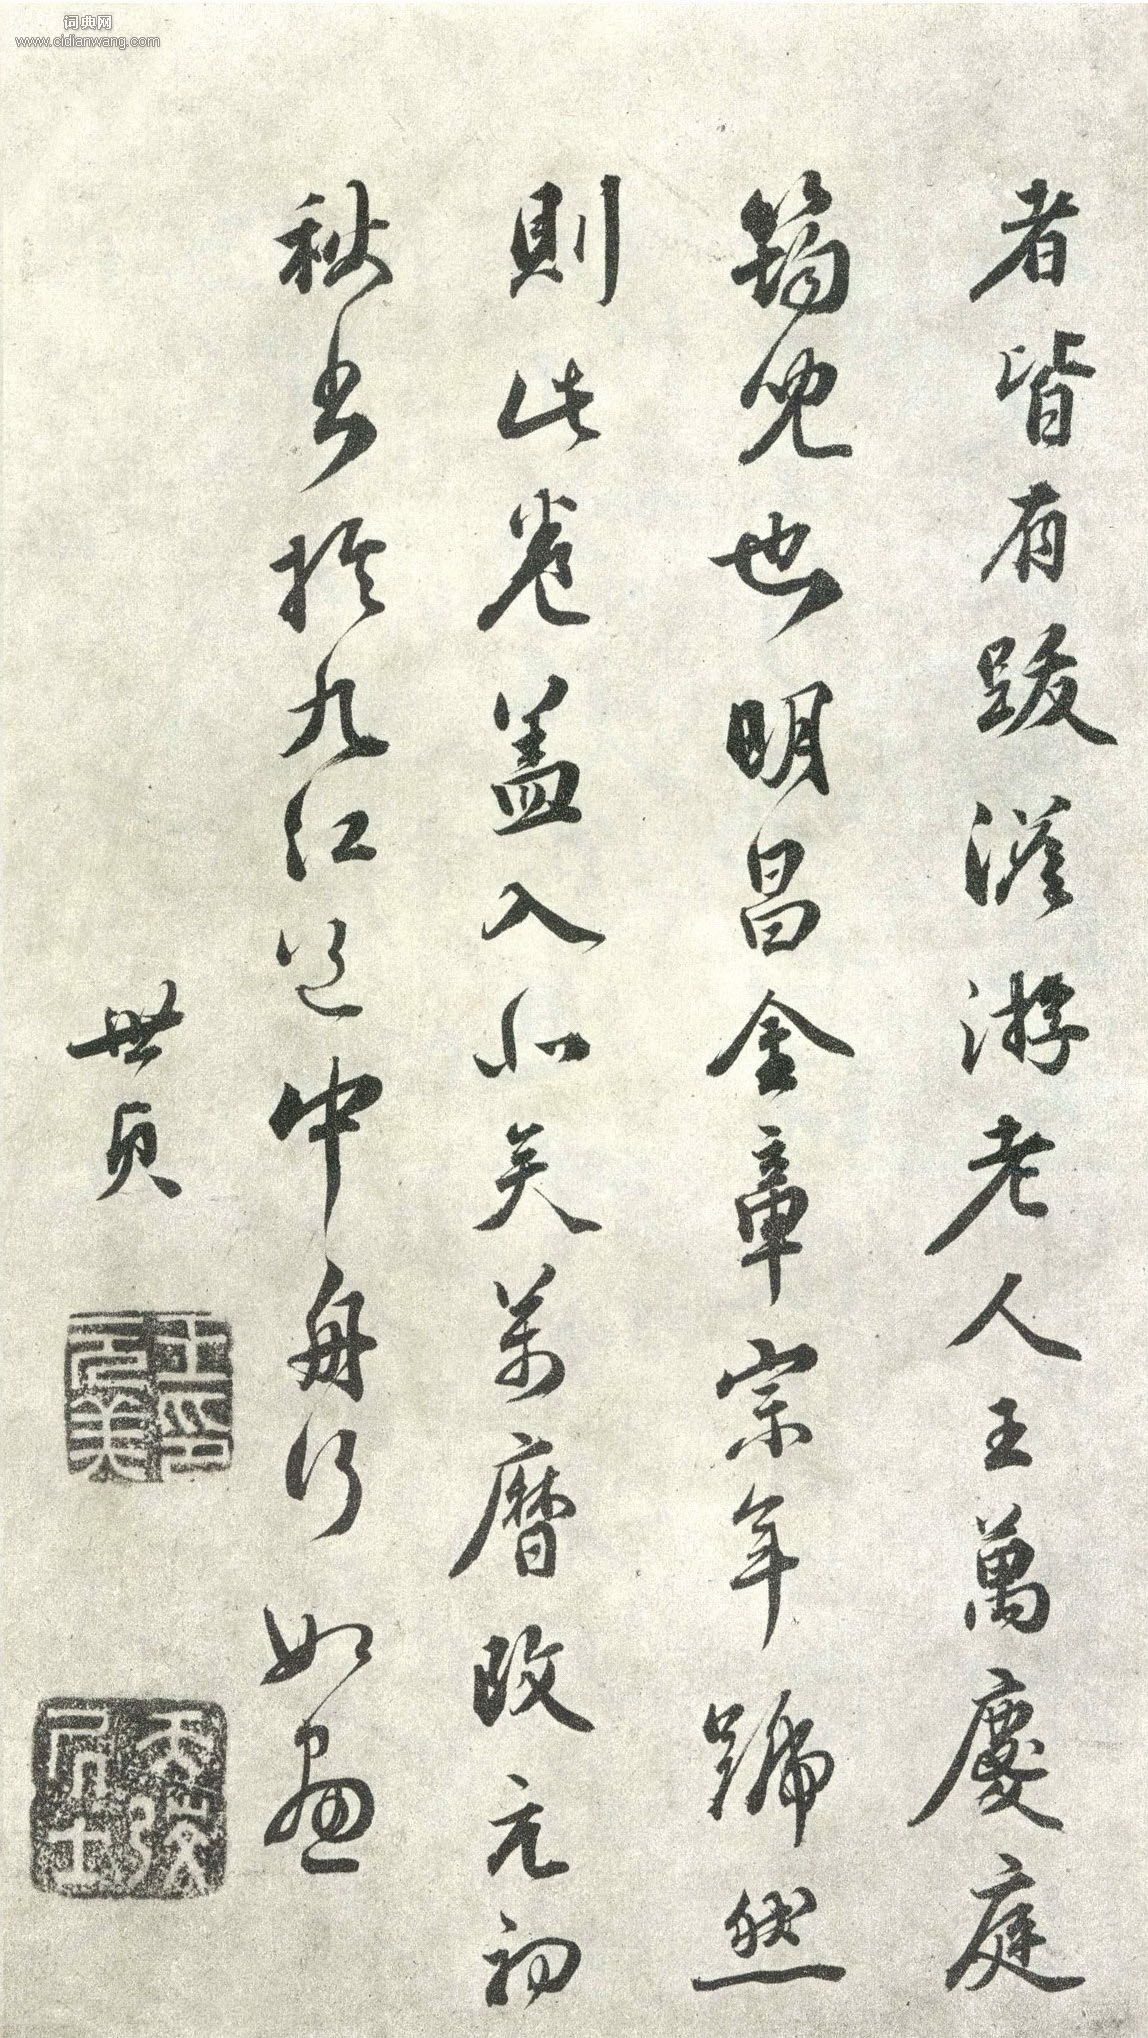 词典网
www.cidianwang.com
者皆有跋澹游老人王萬慶庭
筠兒也明昌金章宗年號然
則此卷盖入北矣萬曆改元初
秋書於九江道中舟行如畫
世貞
王元美印
天弢居士